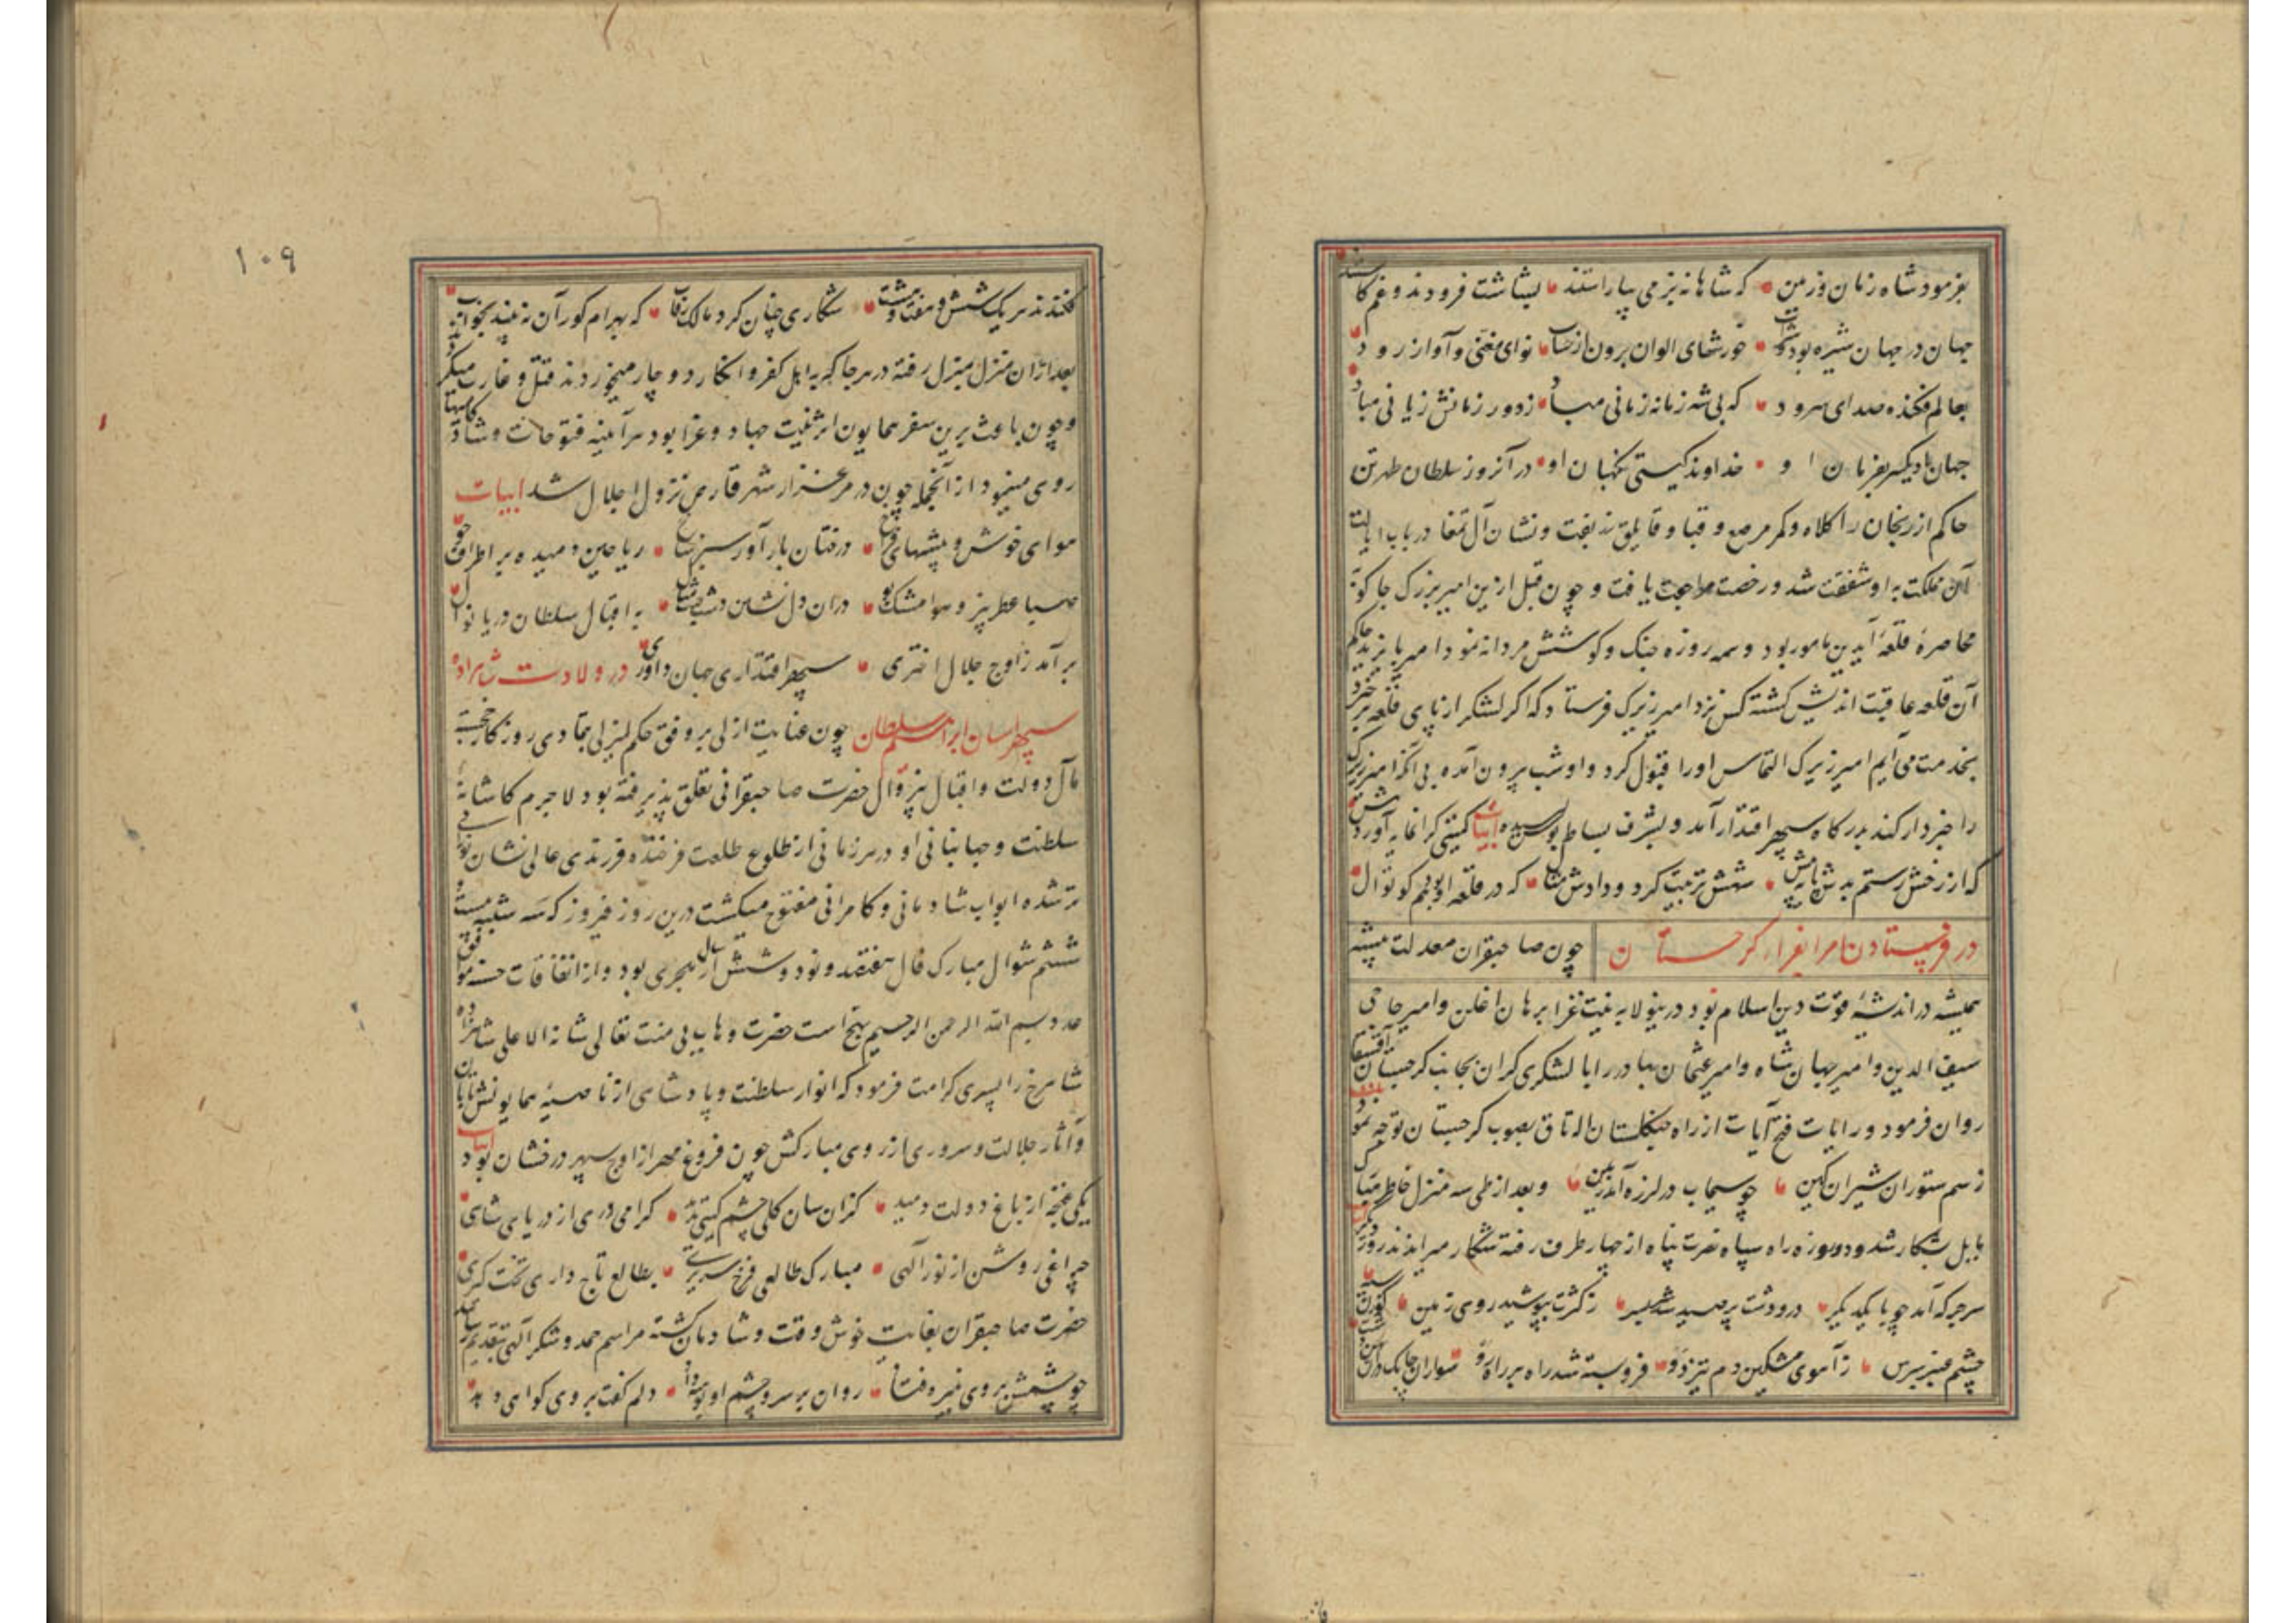 بفرمود شاه زمان و زمین که شاهانه بزمی بیاراستند بشاشت فزودند و غم کاستند
جهان در جهان شیره بود و شراب خورشهای الوان برون از حساب نوای مغنی و آواز رود
بعالم فکنده صدای سرود که بی شه زمانه زمانی مباد ز دور زمانش زیانی مباد
جهان باد یکسر بفرمان او خداوند گیتی نگهبان او در آن روز سلطان طهرتن
حاکم ازرنجان را کلاه و کمر مرصع و قبا و نشان آل تمغا در باب ایالت
آن مملکت به او شفقت شد و رخصت مراجعت یافت و چون قبل ازین امیر بزرک جاکو
محاصرهٔ قلعهٔ آیدین مامور بود و سه روزه جنک و کوشش مردانه نمود امیر بایزید حاکم
آن قلعه عاقبت اندیش کشته کس نزد امیر زیرک فرستاد که اکر لشکر از پای قلعه برخیزد
بخدمت می آیم امیر زیرک التماس او را قبول کرد و او شب بیرون آمده بی آنکه امیر زیرک
را خبردار کند بدرکاه سپهر اقتدار آمد و بشرف بساط بوس رسیده ابیات کمیتی کرانمایه آورد
که از رخش رستم بدش شهش تربیت کرد و دادش که در قلعه او بهم کوتوال
در فرستادن امرا بغزا کرجستان چون صاحبقران معدلت پیشه
همیشه در اندیشهٔ قوت دین اسلام بود درینولا به نیت غزا برهان اغلن و امیر حاجی
سیف الدین و امیر جهان شاه و امیر عثمان بهادر را با لشکری کران بجانب کرجستان
روان فرمود و رایات فتح آیات از راه التاق بصوب کرجستان توجه نمود
ز سم ستوران شیران کین چو سیماب در لرزه آمد زمین و بعد از طی سه منزل خاطر مبارک
مایل شکار شد و دو روزه راه سپاه نصرت پناه از چهار طرف رفته شکار میراندند روز دیگر
سر جرکه آمد چو با یکدیکر در و دشت پر صید شد ز کثرت بپوشید روی زمین
چشم ز آهوی مشکین دم تیز دو فرو بسته شد راه بر راه رو سواران چابک
۱۰۹
فکندند هر یک شش و هفت و هشت شکاری چنان کرد مالک رقاب که بهرام کور آن نه بیند بخواب
بعد از آن منزل بمنزل رفته در هر جا که به اهل کفر و انکار دو چار میخوردند قتل و غارت میکردند
و چون باعث برین سفر همایون اثر نیت جهاد و غزا بود هر آینه فتوحات و شادکامیها
روی مینمود از آنجمله چون در مرغزار شهر قارص نزول اجلال شد ابیات
هوای خوش و بیشهای فراخ درختان بارآور سبز شاخ ریاحین دمیده بر اطراف جو
صبا عطر بیز و هوا مشک بو در آن دل نشین دشت به اقبال سلطان دریا نوال
بر آمد ز اوج جلال اختری سپهر اقتداری جهان داوری در ولادت شاهزاده
سپهر احسان ابراهیم سلطان چون عنایت ازلی بر وفق حکم لم یزلی بتمادی روزکار خجسته
مآل دولت و اقبال بی زوال حضرت صاحبقرانی تعلق پذیرفته بود لاجرم کاشانهٔ
سلطنت و جهانبانی او در هر زمانی از طلوع طلعت فرخندهٔ فرزندی عالی نشان نورانی
تر شده ابواب شادمانی و کامرانی مفتوح میکشت درین روز فیروز که سه شنبه بیست و
ششم شوال مبارک فال سال هفتصد و نود و شش هجری بود و از اتفاقات حسنه موافق
عدد بسم الله الرحمن الرحیم حضرت وهاب بی منت تعالی شانه الاعلی شاهزاده
شاهرخ را پسری کرامت فرمود که انوار سلطنت و پادشاهی از ناصیهٔ همایونش تابان
و آثار جلالت و سروری از روی مبارکش چون فروغ مهر از اوج سپهر درخشان بود ابیات
یکی غنچه از باغ دولت دمید کزان سان کلی چشم کیتی ندید کرامی دری از دریای شاهی
چراغی روشن از نور الهی مبارک طالعی فرخ سریری بطالع تاج داری تخت گیری
حضرت صاحبقران بغایت خوش وقت و شادمان کشته مراسم حمد و شکر الهی بتقدیم رسانید
چو چشمش بروی نبیره فتاد روان بر سر و چشم او بوسه داد دلم کفت بر وی کواهی دهد